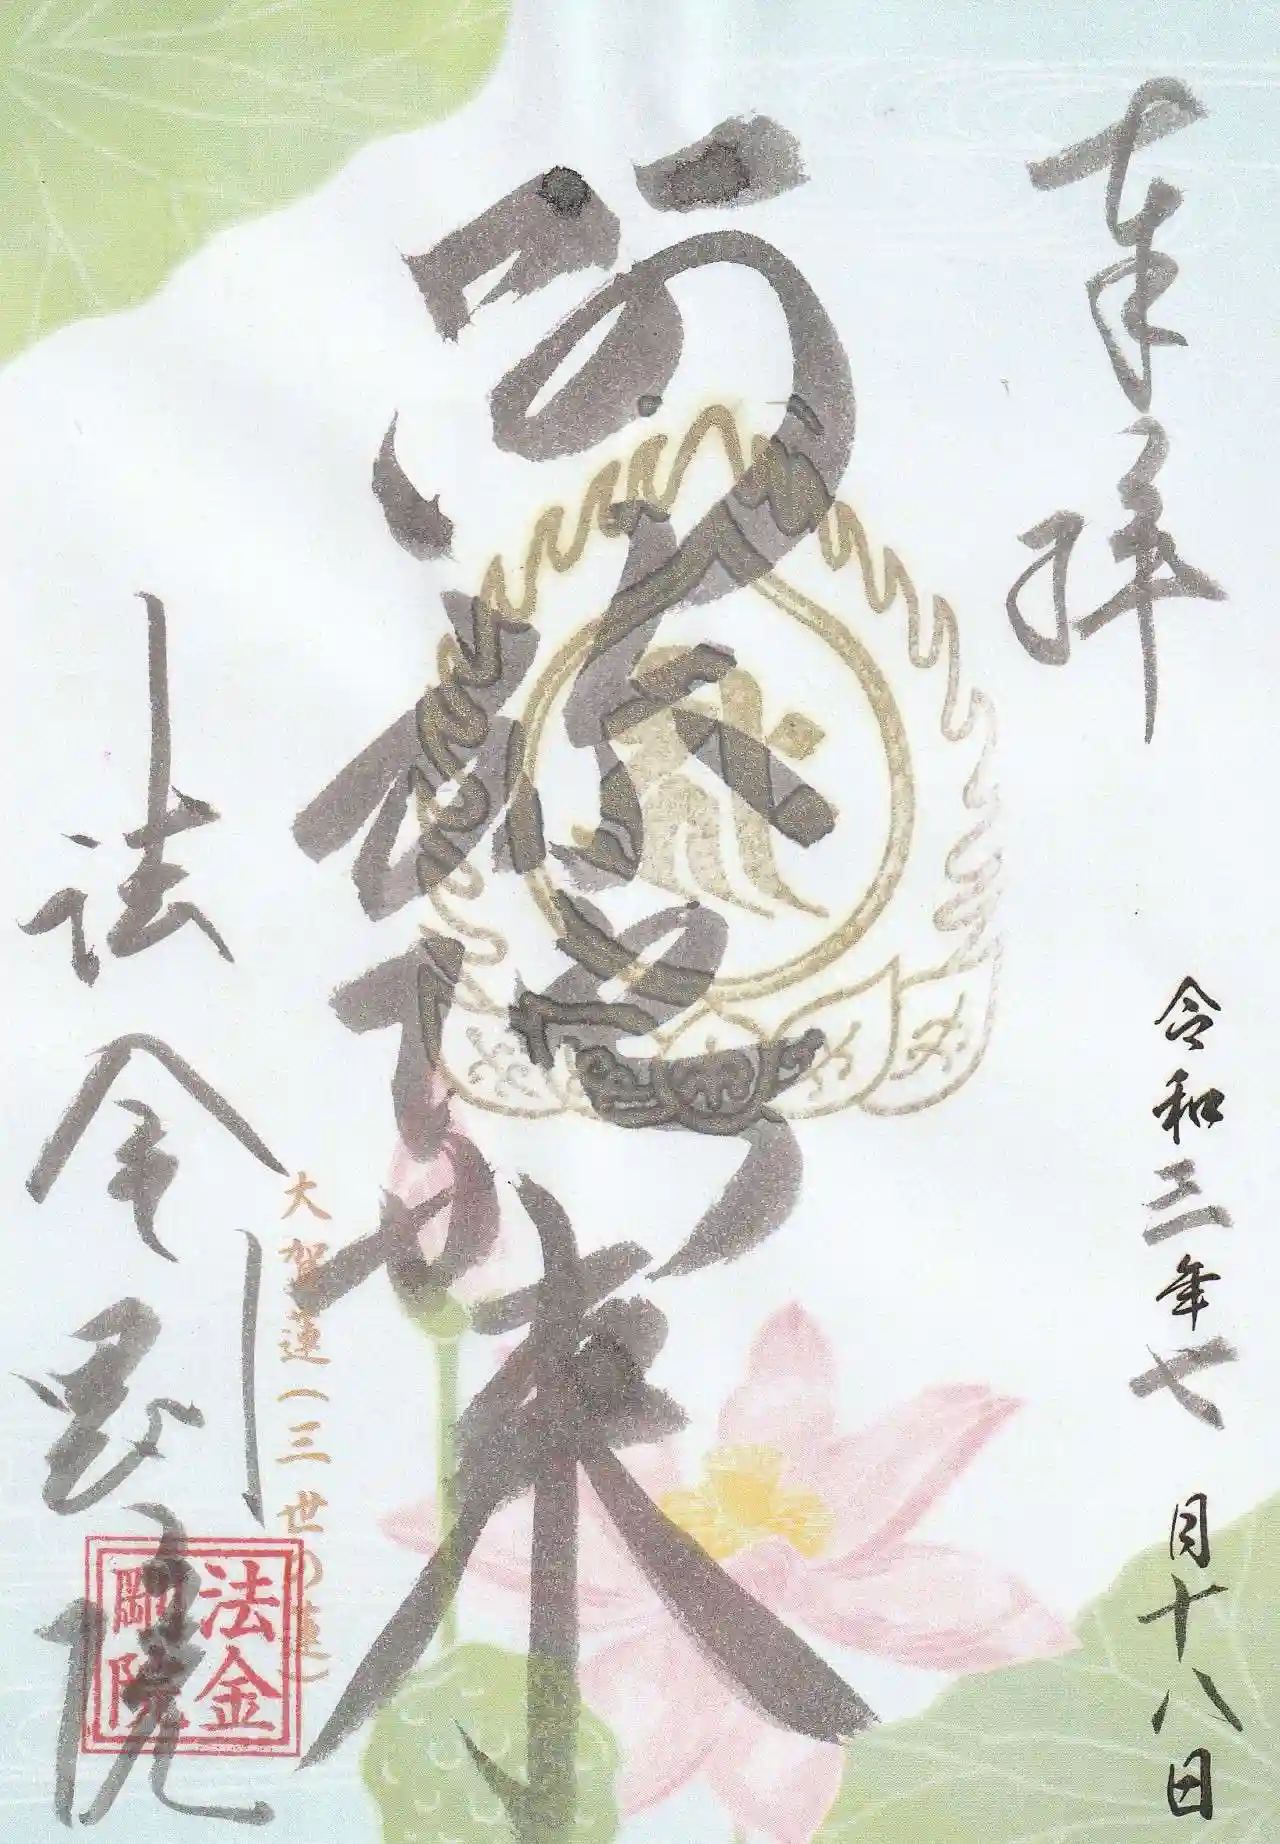 奉拝
令和三年七月十八日
阿弥陀如来
大賀蓮(三世の蓮)
法金剛院
法金
剛院